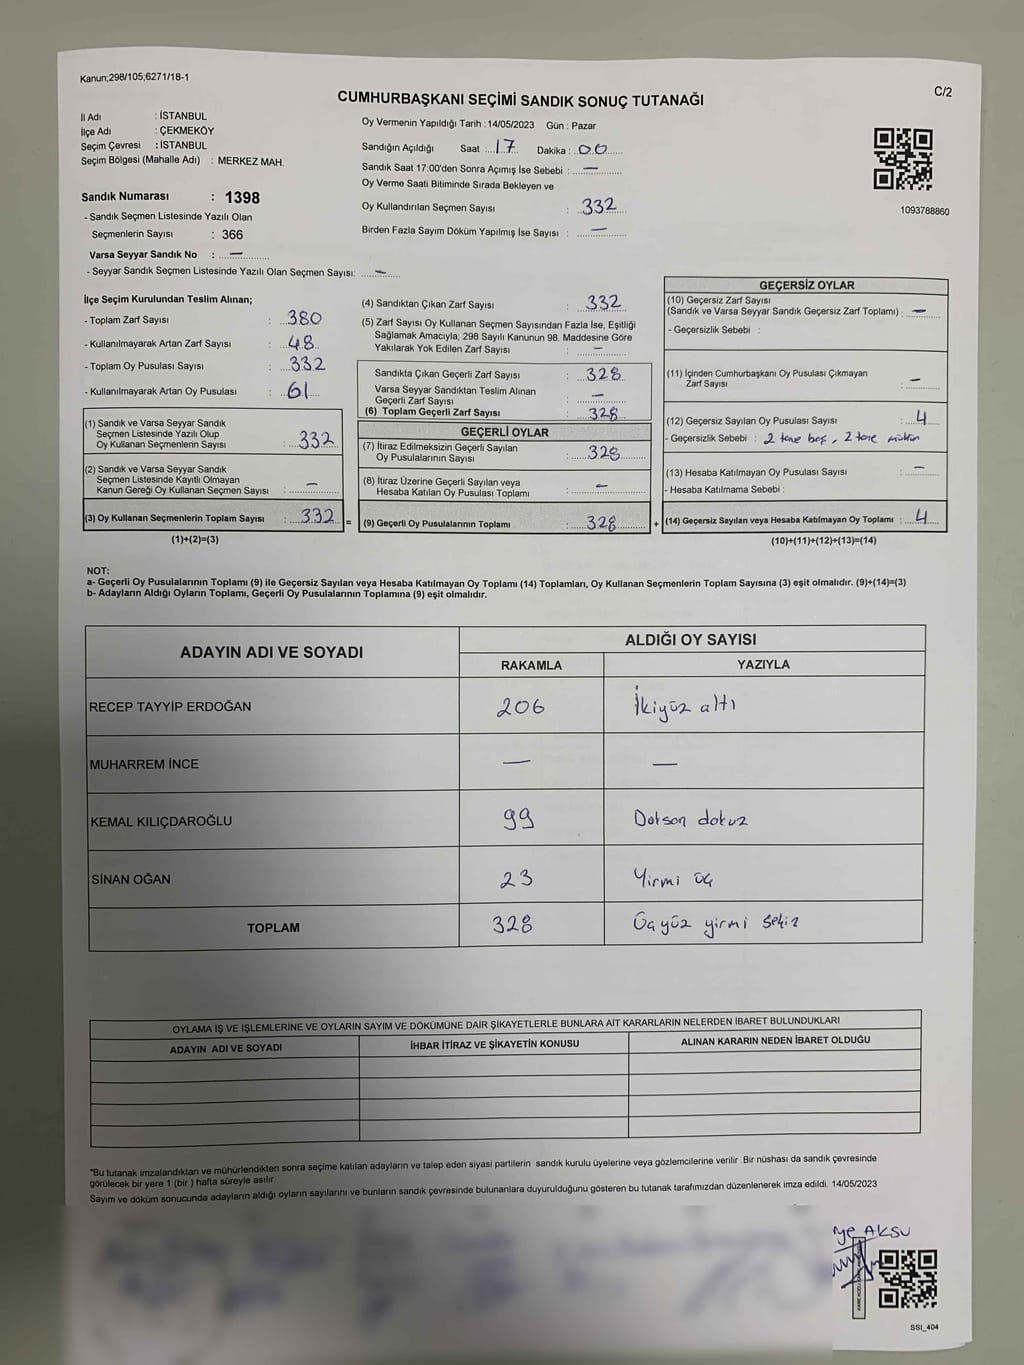 Kanun;298/105;6271/18-1
C/2
CUMHURBAŞKANI SEÇİMİ SANDIK SONUÇ TUTANAĞI
İl Adı : İSTANBUL
İlçe Adı : ÇEKMEKÖY
Seçim Çevresi : İSTANBUL
Seçim Bölgesi (Mahalle Adı) : MERKEZ MAH.
Sandık Numarası : 1398
- Sandık Seçmen Listesinde Yazılı Olan
Seçmenlerin Sayısı : 366
Varsa Seyyar Sandık No : —
- Seyyar Sandık Seçmen Listesinde Yazılı Olan Seçmen Sayısı: —
Oy Vermenin Yapıldığı Tarih : 14/05/2023 Gün : Pazar
Sandığın Açıldığı Saat : 17 Dakika : 00
Sandık Saat 17:00'den Sonra Açımış İse Sebebi : —
Oy Verme Saati Bitiminde Sırada Bekleyen ve
Oy Kullandırılan Seçmen Sayısı : 332
Birden Fazla Sayım Döküm Yapılmış İse Sayısı : —
1093788860
İlçe Seçim Kurulundan Teslim Alınan;
- Toplam Zarf Sayısı : 380
- Kullanılmayarak Artan Zarf Sayısı : 48
- Toplam Oy Pusulası Sayısı : 332
- Kullanılmayarak Artan Oy Pusulası : 61
(1) Sandık ve Varsa Seyyar Sandık
Seçmen Listesinde Yazılı Olup
Oy Kullanan Seçmenlerin Sayısı : 332
(2) Sandık ve Varsa Seyyar Sandık
Seçmen Listesinde Kayıtlı Olmayan
Kanun Gereği Oy Kullanan Seçmen Sayısı : —
(3) Oy Kullanan Seçmenlerin Toplam Sayısı : 332 =
(1)+(2)=(3)
(4) Sandıktan Çıkan Zarf Sayısı : 332
(5) Zarf Sayısı Oy Kullanan Seçmen Sayısından Fazla İse, Eşitliği
Sağlamak Amacıyla; 298 Sayılı Kanunun 98. Maddesine Göre
Yakılarak Yok Edilen Zarf Sayısı : —
Sandıkta Çıkan Geçerli Zarf Sayısı : 328
Varsa Seyyar Sandıktan Teslim Alınan
Geçerli Zarf Sayısı : —
(6) Toplam Geçerli Zarf Sayısı : 328
GEÇERLİ OYLAR
(7) İtiraz Edilmeksizin Geçerli Sayılan
Oy Pusulalarının Sayısı : 328
(8) İtiraz Üzerine Geçerli Sayılan veya
Hesaba Katılan Oy Pusulası Toplamı : —
(9) Geçerli Oy Pusulalarının Toplamı : 328 +
GEÇERSİZ OYLAR
(10) Geçersiz Zarf Sayısı
(Sandık ve Varsa Seyyar Sandık Geçersiz Zarf Toplamı) : —
- Geçersizlik Sebebi :
(11) İçinden Cumhurbaşkanı Oy Pusulası Çıkmayan
Zarf Sayısı : —
(12) Geçersiz Sayılan Oy Pusulası Sayısı : 4
- Geçersizlik Sebebi : 2 tane boş, 2 tane
(13) Hesaba Katılmayan Oy Pusulası Sayısı : —
- Hesaba Katılmama Sebebi :
(14) Geçersiz Sayılan veya Hesaba Katılmayan Oy Toplamı : 4
(10)+(11)+(12)+(13)=(14)
NOT:
a- Geçerli Oy Pusulalarının Toplamı (9) ile Geçersiz Sayılan veya Hesaba Katılmayan Oy Toplamı (14) Toplamları, Oy Kullanan Seçmenlerin Toplam Sayısına (3) eşit olmalıdır. (9)+(14)=(3)
b- Adayların Aldığı Oyların Toplamı, Geçerli Oy Pusulalarının Toplamına (9) eşit olmalıdır.
ADAYIN ADI VE SOYADI ALDIĞI OY SAYISI
RAKAMLA YAZIYLA
RECEP TAYYİP ERDOĞAN 206 İkiyüz altı
MUHARREM İNCE — —
KEMAL KILIÇDAROĞLU 99 Doksan dokuz
SİNAN OĞAN 23 Yirmi üç
TOPLAM 328 Üçyüz yirmi sekiz
OYLAMA İŞ VE İŞLEMLERİNE VE OYLARIN SAYIM VE DÖKÜMÜNE DAİR ŞİKAYETLERLE BUNLARA AİT KARARLARIN NELERDEN İBARET BULUNDUKLARI
ADAYIN ADI VE SOYADI İHBAR İTİRAZ VE ŞİKAYETİN KONUSU ALINAN KARARIN NEDEN İBARET OLDUĞU
"Bu tutanak imzalandıktan ve mühürlendikten sonra seçime katılan adayların ve talep eden siyasi partilerin sandık kurulu üyelerine veya gözlemcilerine verilir. Bir nüshası da sandık çevresinde
görülecek bir yere 1 (bir ) hafta süreyle asılır.
Sayım ve döküm sonucunda adayların aldığı oyların sayılarını ve bunların sandık çevresinde bulunanlara duyurulduğunu gösteren bu tutanak tarafımızdan düzenlenerek imza edildi. 14/05/2023
ye AKSU
SSI_404